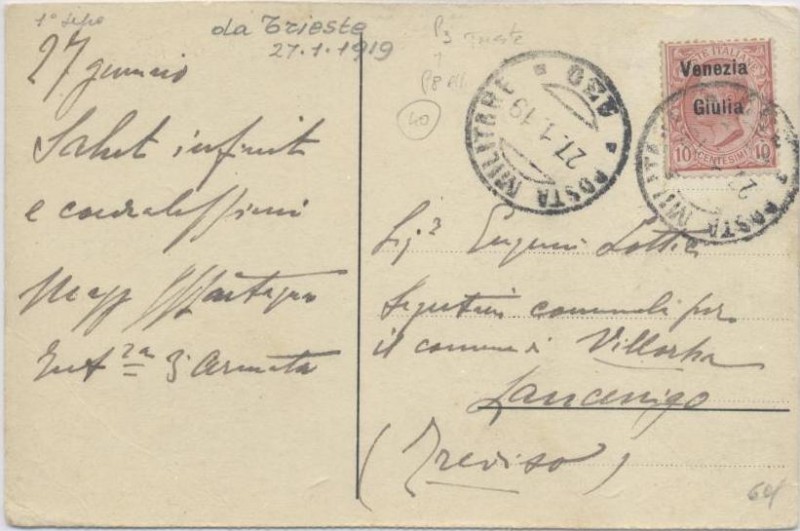 1° sepo
da Trieste
27.1.1919
27 gennaio
Saluti infiniti
e cordialissimi
Magg
Int^za 3ª Armata
P3 Trieste
P8
40
POSTA MILITARE
27.1.19
Venezia
Giulia
POSTE ITALIANE
10 CENTESIMI 10
POSTA MILITA
Sig^r Eugenio Lotti
Segretario comunale per
il comune di Villorba
Lancenigo
(Treviso)
60f